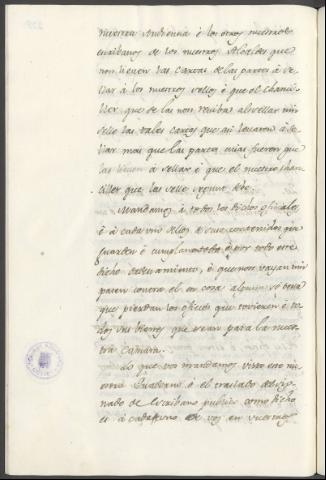 nuestra Audiencia é los otros nuestros
escribanos de los nuestros Alcaldes que
non lieven las cartas de las partes á se-
llar á los nuestros sellos é que el chanci-
ller que de las non reciba al sellar nin
selle las tales cartas que asi levaren á se-
llar mas que las partes cuias fueren que
las lieven á sellar é que el nuestro chan-
ciller que las selle segunt debe.
Mandamos á todos los dichos oficiales
é á cada uno dellos que este contenidos que
guarden é cumplan todo esto por todo este
dicho ordenamiento, é que non vayan nin
pasen contra el en cosa alguna só pena
que pierdan los oficios que tovieren é to-
dos sus bienes que sean para la nues-
tra Camara.
Lo que vos mandamos visto este nu-
estro Quaderno ó el traslado de él sig-
nado de Escribano publico como dicho
es á cada uno de vos en vuestros